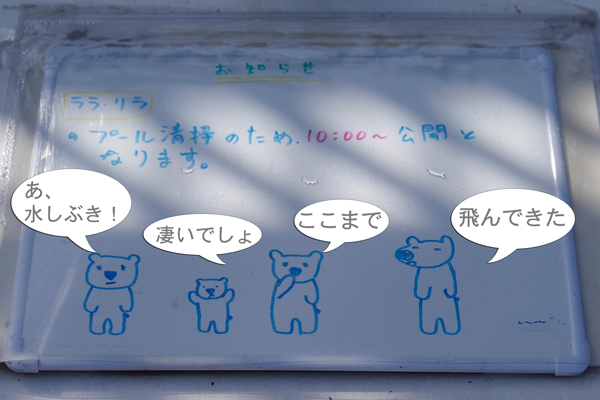 お知らせ
ララ・リラ
プール清掃のため、10:00～公開と
なります。
あ、
水しぶき！
凄いでしょ
ここまで
飛んできた